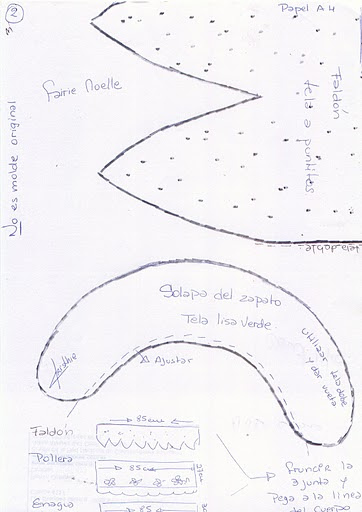 2
Papel A4
Fairie Noelle
Faldón
tela a puntitos
No es molde original
Solapa del zapato
Tela lisa verde
Ajustar
Utilizar tela doble
y dar vuelta
Faldón
85cm
Pollera
85cm
Enagua
85
fruncir la
ajunta y
Pega a la línea
del cuerpo